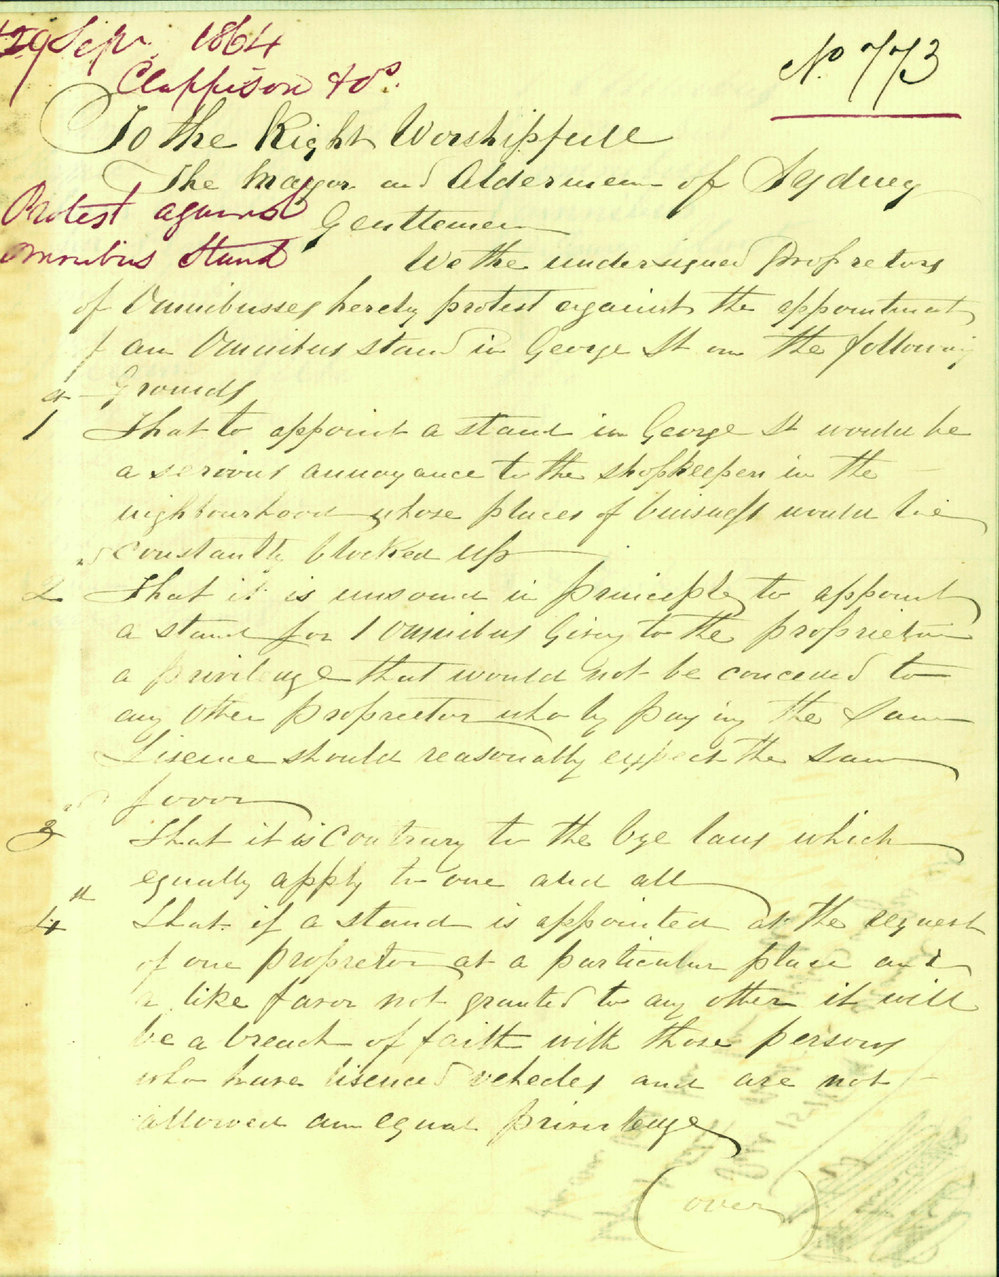 29 Sepr. 1864
Clappison & Ors.
No 773
To the Right Worshipfull
The Mayor and Aldermen of Sydney
Protest against
Omnibus Stand
Gentlemen
We the undersigned Proprietors
of Omnibusses hereby protest against the appointment
of an Omnibus stand in George St on the following
Grounds
1st That to appoint a stand in George St would be
a serious annoyance to the shopkeepers in the
neighbourhood whose places of buisness would be
constantly blocked up
2nd That it is unsound in principle to appoint
a stand for 1 omnibus Giving to the proprietor
a priviledge that would not be conceued to
any other proprietor who by paying the same
Lisence should reasonably expect the same
favor
3rd That it is contrary to the bye laws which
equally apply to one and all
4th That if a stand is appointed at the request
of one propretor at a particular place and
a like favor not granted to any other it will
be a breach of faith with those persons
who have lisenced vehecles and are not
allowed an equal priviledge
(over)